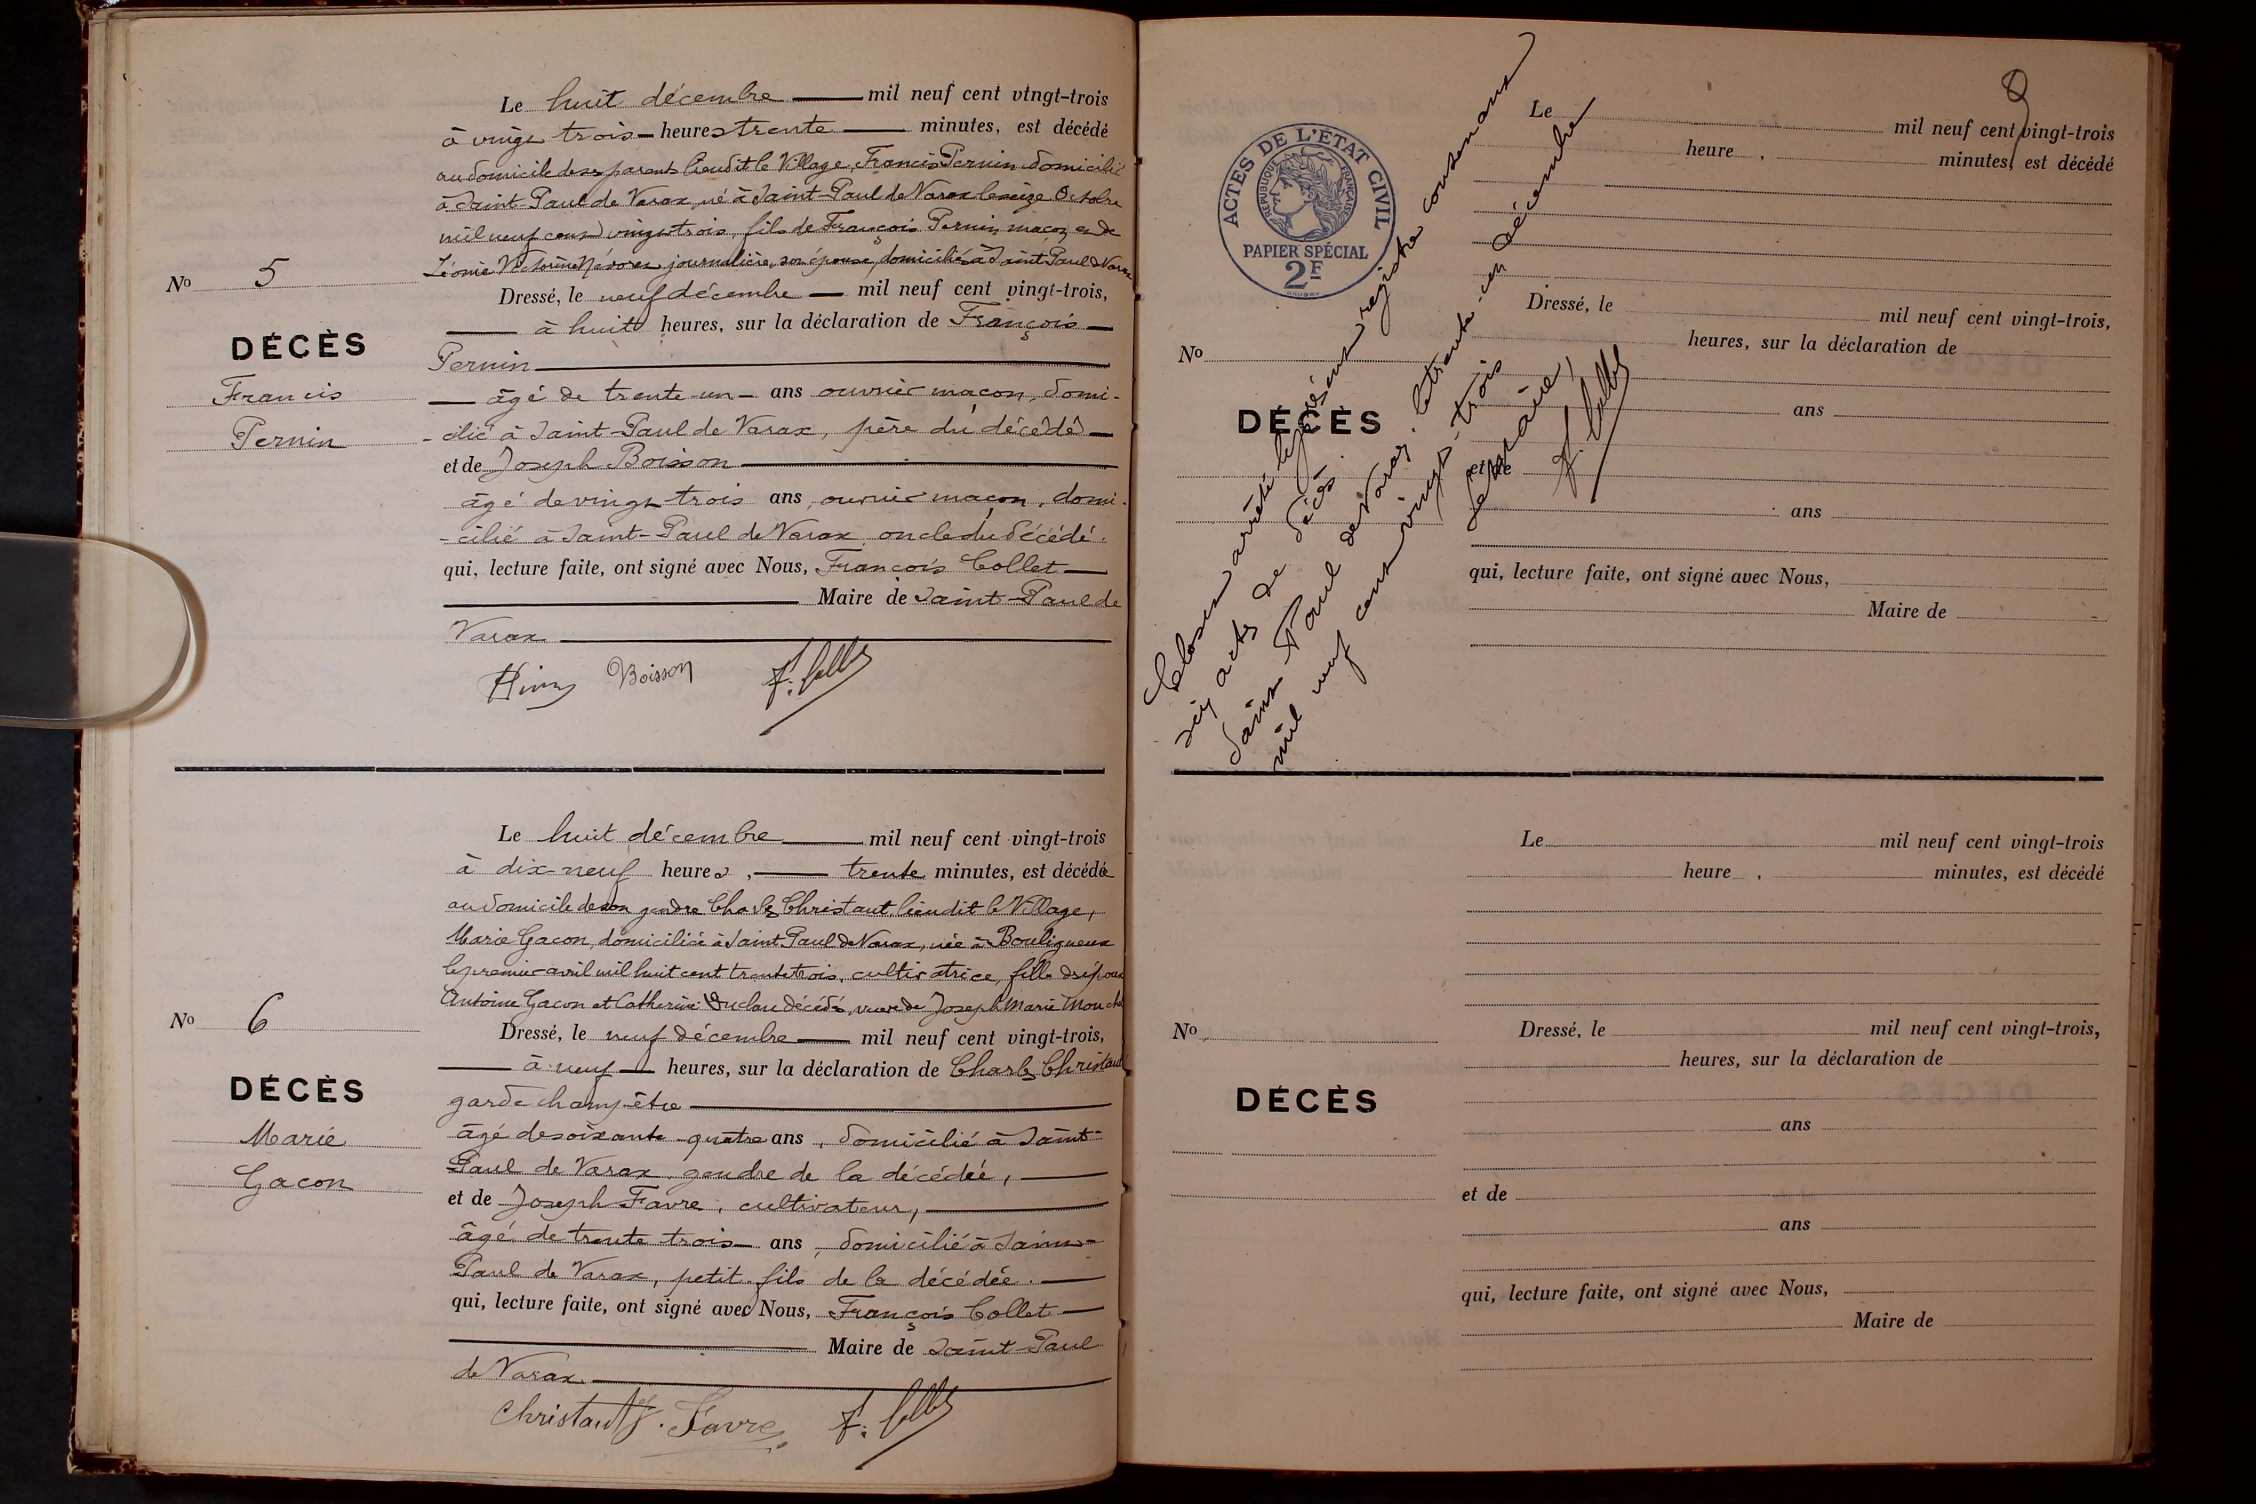 Le huit décembre mil neuf cent vingt-trois
à vingt trois heures trente minutes, est décédé
au domicile de ses parents lieu dit le Village, Francis Pernin domicilié
à Saint-Paul de Varax, né à Saint-Paul de Varax le seize Octobre
mil neuf cent vingt trois, fils de François Pernin, maçon et de
Léonie journalière, son épouse, domiciliés à Saint Paul de Varax
No 5
Dressé, le neuf décembre mil neuf cent vingt-trois,
à huit heures, sur la déclaration de François
DÉCÈS
Francis
Pernin
Pernin
âgé de trente-un ans ouvrier maçon, domi-
-cilié à Saint-Paul de Varax, père du décédé
et de Joseph Boisson
âgé de vingt trois ans, ouvrier maçon, domi-
-cilié à Saint-Paul de Varax, oncle du décédé.
qui, lecture faite, ont signé avec Nous, François Collet
Maire de Saint-Paul de
Varax
Boisson F. Collet
Le huit décembre mil neuf cent vingt-trois
à dix neuf heures, trente minutes, est décédée
au domicile de son gendre Charles Christaut, lieu dit le Village,
Marie Gacon, domiciliée à Saint Paul de Varax, née à Bouligneux
le premier avril mil huit cent trente trois, cultivatrice, fille des époux
Antoine Gacon et Catherine Duclou décédés, veuve de Joseph Marie
No 6
Dressé, le neuf décembre mil neuf cent vingt-trois,
à neuf heures, sur la déclaration de Charles Christaut
DÉCÈS
Marie
Gacon
garde champêtre
âgé de soixante-quatre ans, domicilié à Saint-
Paul de Varax, gendre de la décédée,
et de Joseph Favre, cultivateur,
âgé de trente trois ans, domicilié à Saint-
Paul de Varax, petit-fils de la décédée.
qui, lecture faite, ont signé avec Nous, François Collet
Maire de Saint-Paul
de Varax.
Christaut J. Favre F. Collet
9
ACTES DE L'ÉTAT CIVIL
RÉPUBLIQUE FRANÇAISE
PAPIER SPÉCIAL
2F
Clos et arrêté le présent registre contenant
six actes de décès.
Saint Paul de Varax, le trente-un décembre
mil neuf cent vingt-trois
Le Maire,
F. Collet
Le mil neuf cent vingt-trois
heure , minutes, est décédé
Dressé, le mil neuf cent vingt-trois,
heures, sur la déclaration de
No
DÉCÈS
ans
et de
ans
qui, lecture faite, ont signé avec Nous,
Maire de
Le mil neuf cent vingt-trois
heure , minutes, est décédé
No
Dressé, le mil neuf cent vingt-trois,
heures, sur la déclaration de
DÉCÈS
ans
et de
ans
qui, lecture faite, ont signé avec Nous,
Maire de